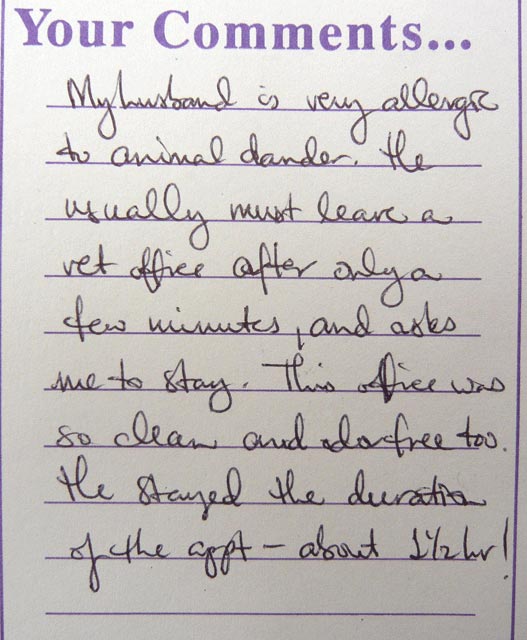 Your Comments...
My husband is very allergic
to animal dander. He
usually must leave a
vet office after only a
few minutes, and asks
me to stay. This office was
so clean and odorfree too.
He stayed the duration
of the appt — about 1½ hr!